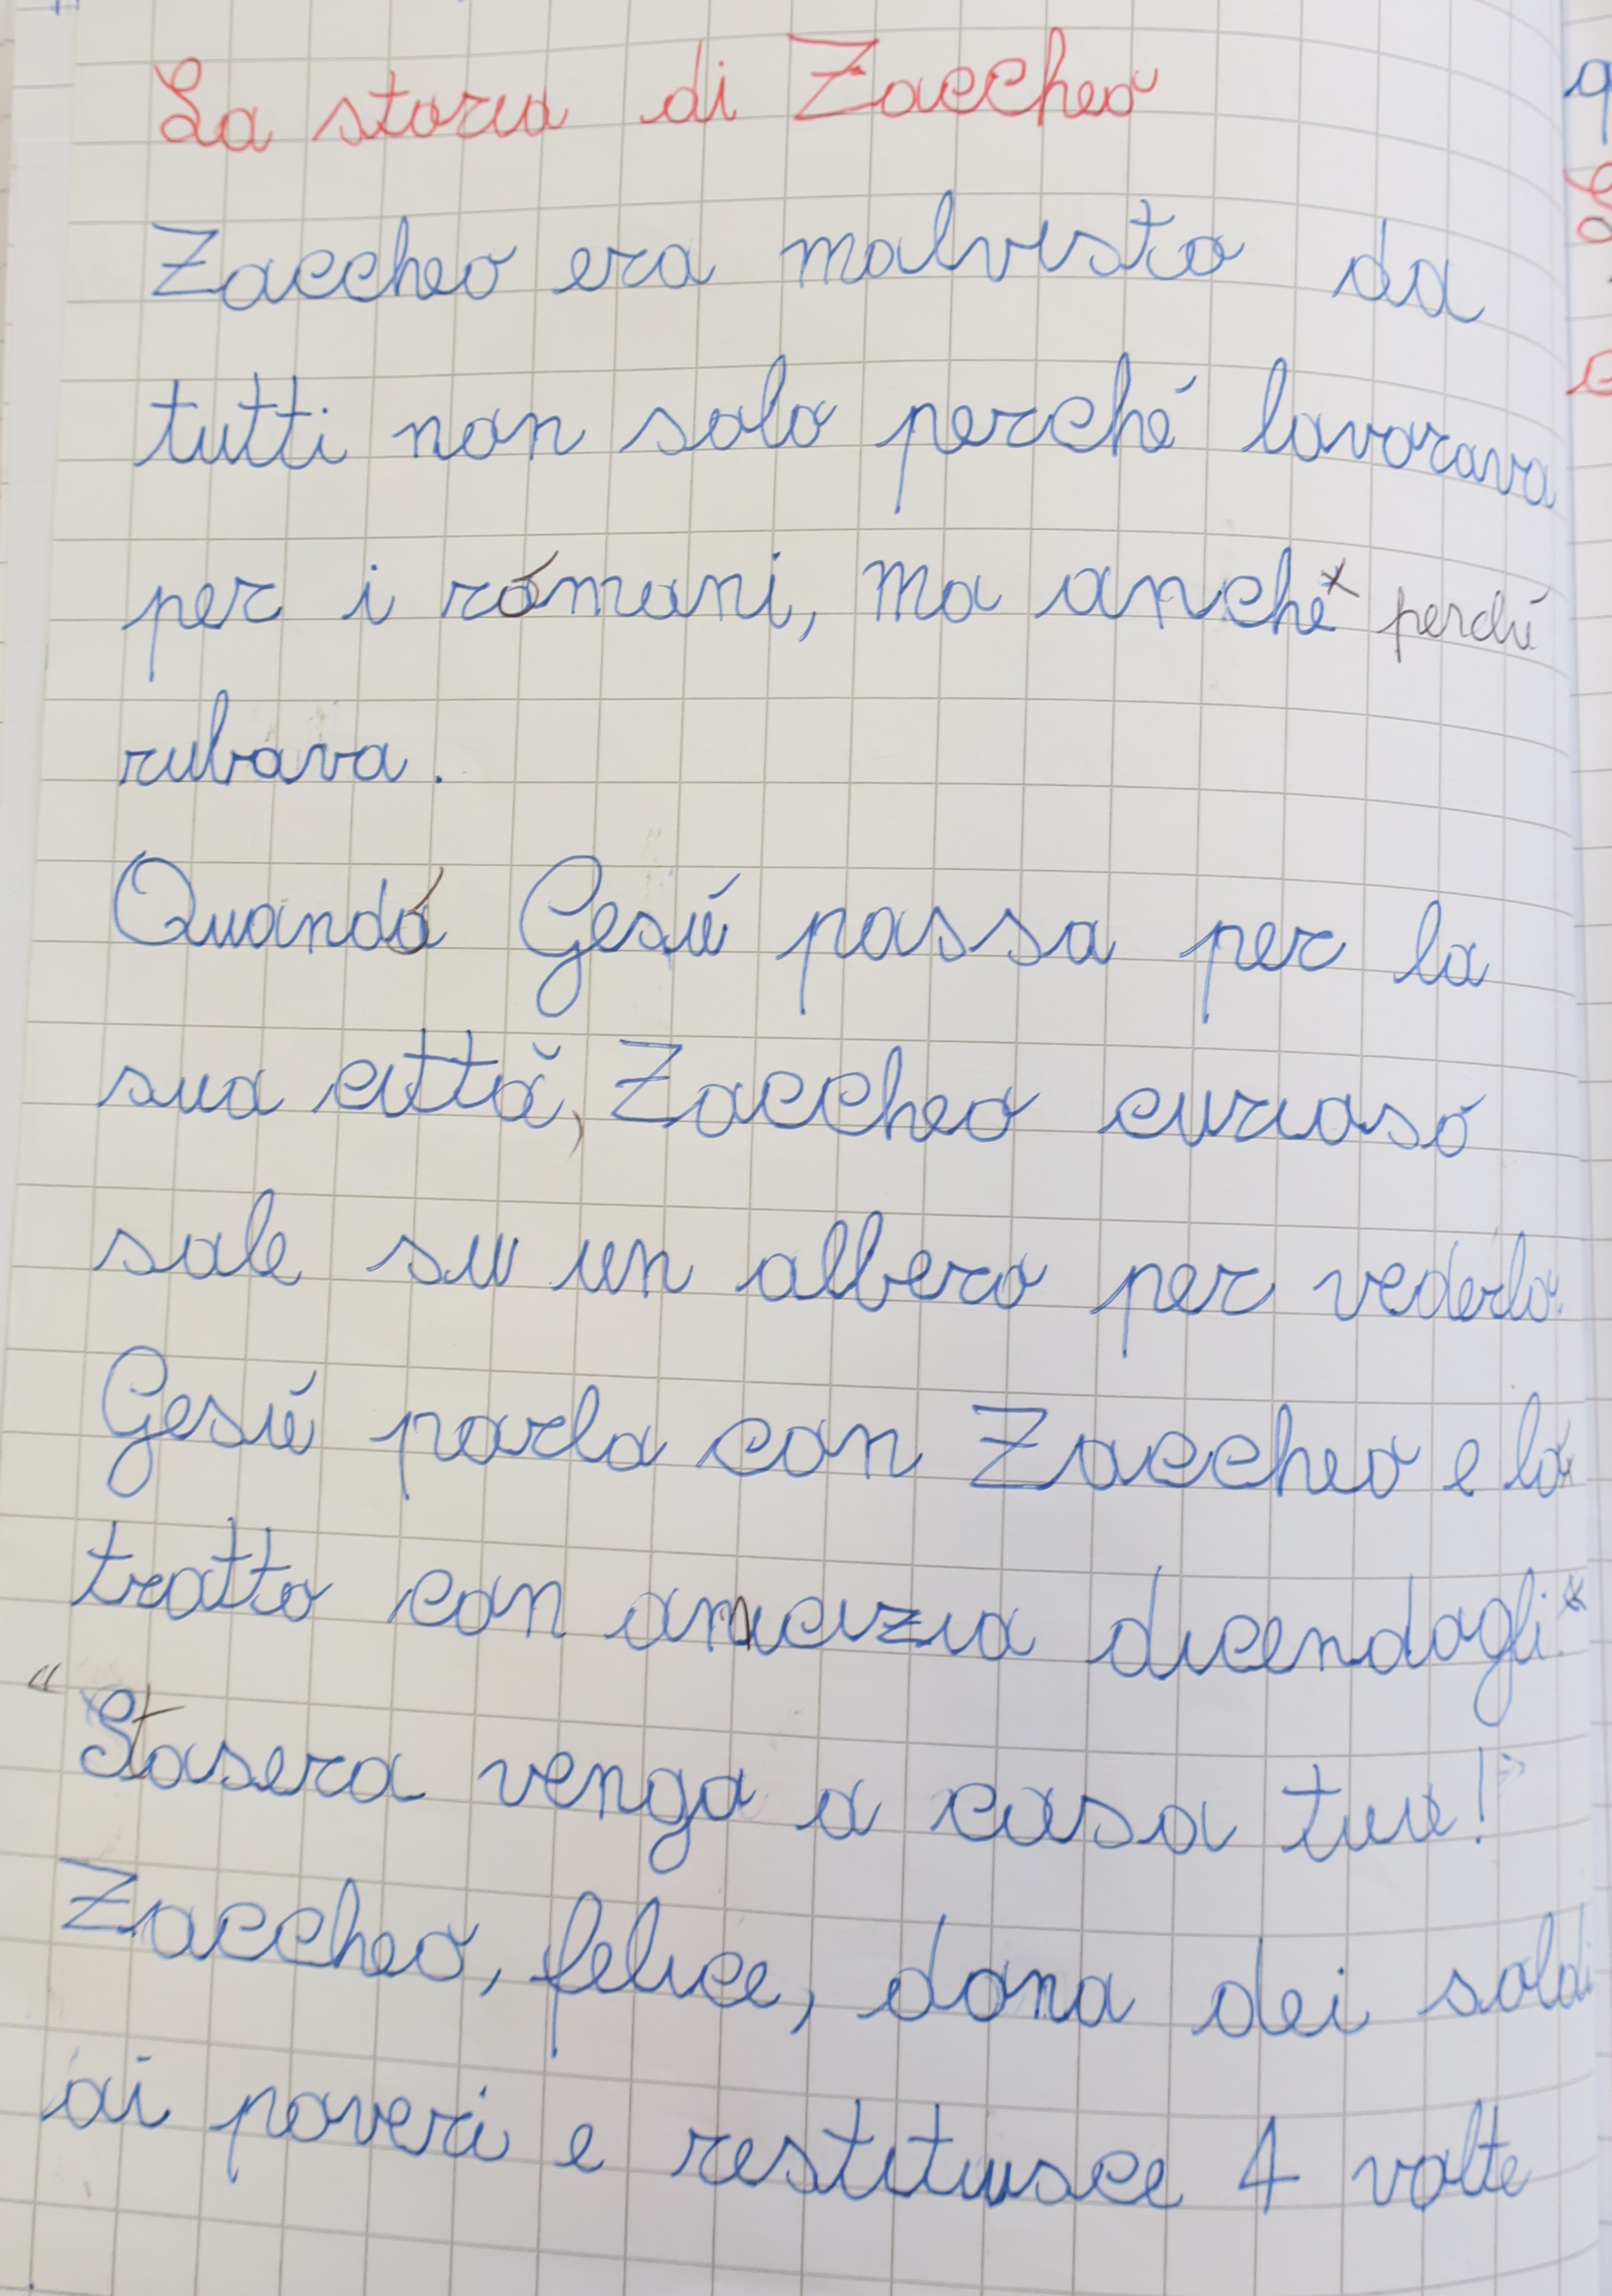 La storia di Zaccheo
Zaccheo era malvisto da
tutti non solo perché lavorava
per i romani, ma anche x perché
rubava.
Quando Gesù passa per la
sua città, Zaccheo curioso
sale su un albero per vederlo.
Gesù parla con Zaccheo e lo
tratto con amicizia dicendogli:
"Stasera vengo a casa tua!"
Zaccheo, felice, dona dei soldi
ai poveri e restituisce 4 volte